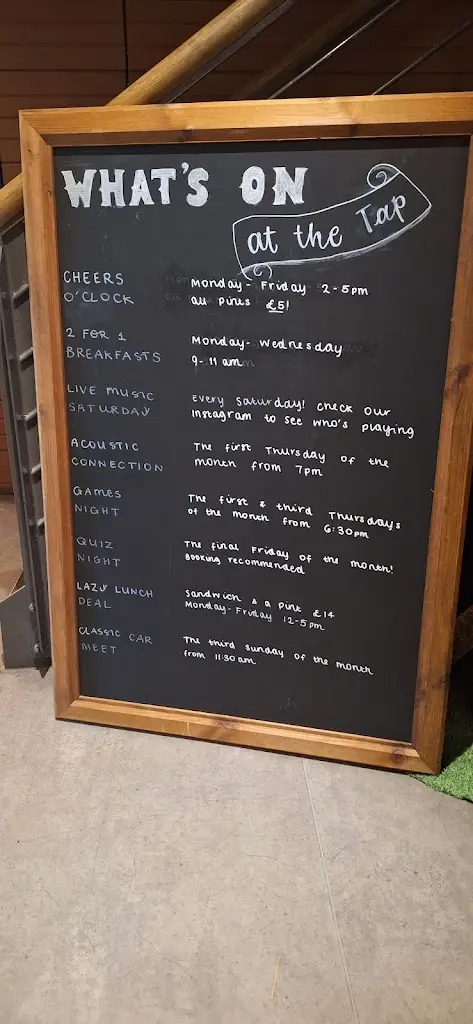 WHAT'S ON
at the Tap
CHEERS O'CLOCK
Monday - Friday 2-5pm
all pints £5!
2 FOR 1 BREAKFASTS
Monday - Wednesday
9-11 am
LIVE MUSIC SATURDAY
Every Saturday! Check our
Instagram to see who's playing
ACOUSTIC CONNECTION
The first Thursday of the
month from 7pm
GAMES NIGHT
The first & third Thursdays
of the month from 6:30pm
QUIZ NIGHT
The final Friday of the month!
Booking recommended
LAZY LUNCH DEAL
Sandwich & a pint £14
Monday-Friday 12-5pm
CLASSIC CAR MEET
The third Sunday of the month
from 11:30am